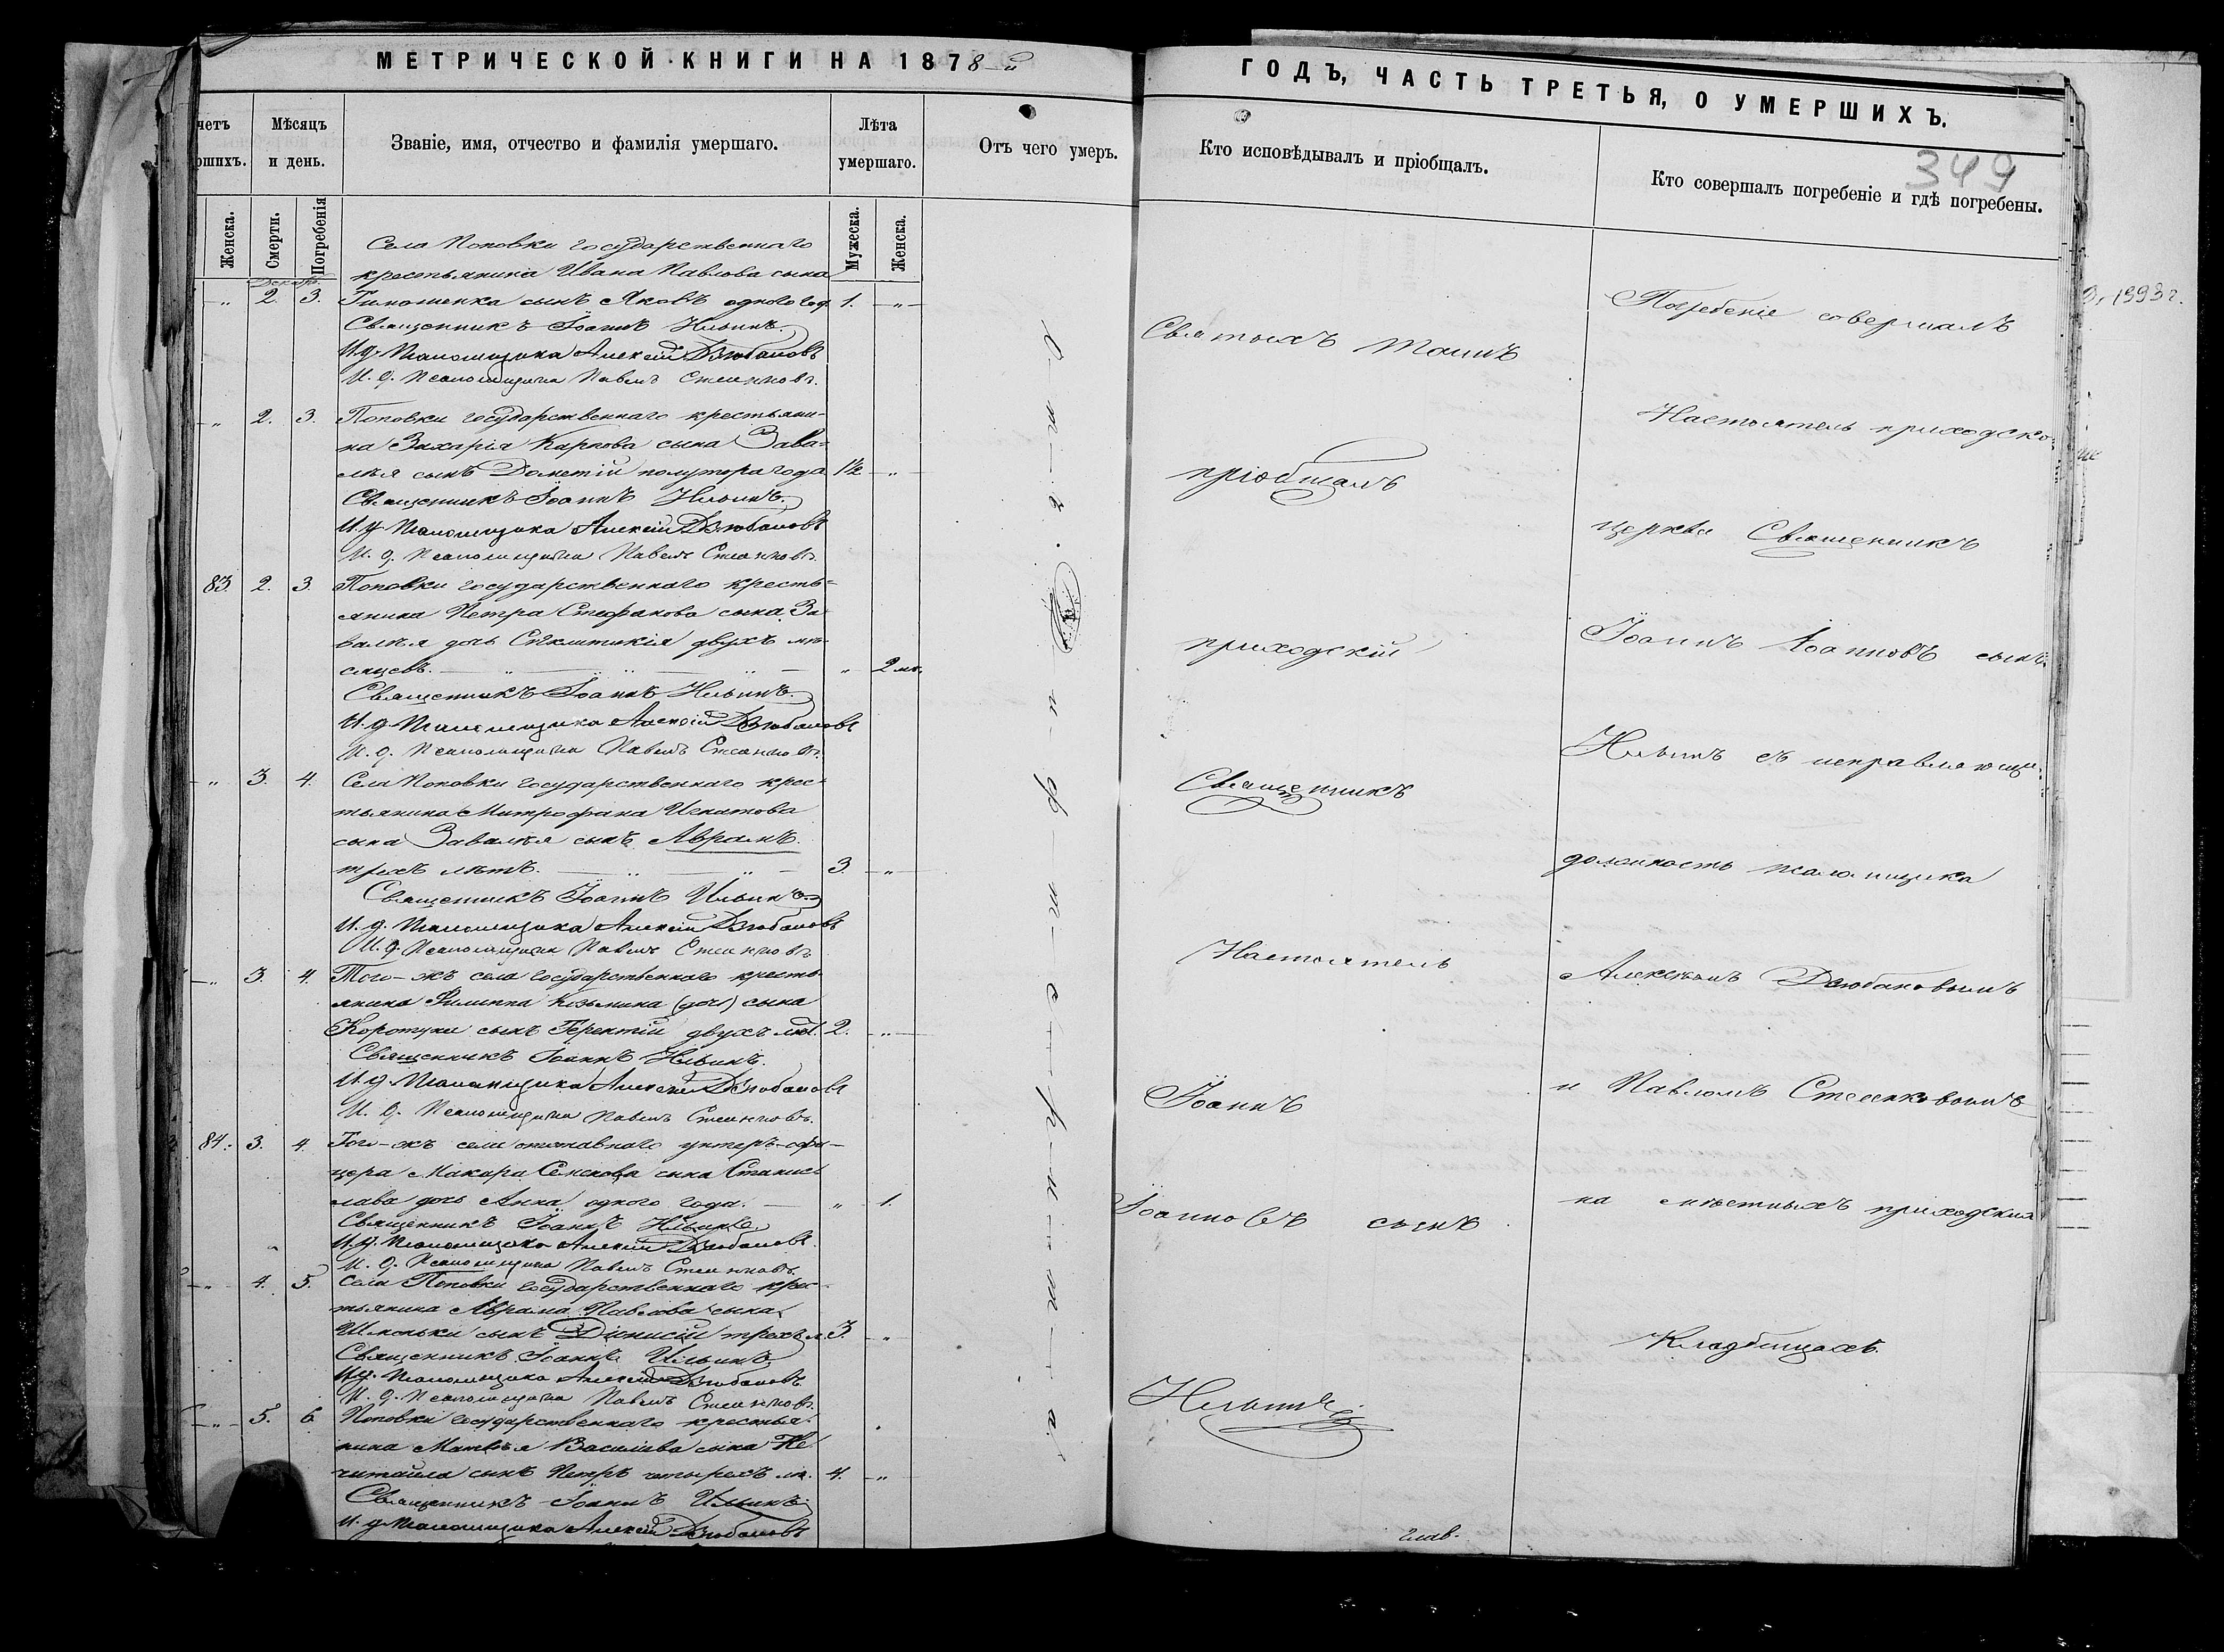 МЕТРИЧЕСКОЙ КНИГИ НА 1878-й
четъ
ршихъ.
Мѣсяцъ
и день.
Званіе, имя, отчество и фамилія умершаго.
Лѣта
умершаго.
Отъ чего умеръ.
Женска.
Смерти.
Погребенія
Мужеска.
Женска.
Села Поповки государственнаго
крестьянина Ивана Павлова сына
2. 3. сынъ Яковъ одного год. 1. „
Священникъ Іоаннъ Ильинъ.
И. д. Псаломщика Алексій Дзюбановъ
И. д. Псаломщика Павелъ
„ 2. 3. Поповки государственнаго крестьяни-
на Захарія Карпова сына Зава-
лѣя сынъ Дометій полутора года 1½ „
Священникъ Іоаннъ Ильинъ.
И. д. Псаломщика Алексій Дзюбановъ
И. д. Псаломщика Павелъ
83 2. 3. Поповки государственнаго кресть-
янина Петра Стефанова сына За-
валѣя дочь двухъ мѣ-
сяцевъ. „ 2 мѣ.
Священникъ Іоаннъ Ильинъ.
И. д. Псаломщика Алексій Дзюбановъ
И. д. Псаломщика Павелъ
„ 3. 4. Села Поповки государственнаго крес-
тьянина Митрофана Игнатова
сына Завалѣя сынъ Аврамъ.
трехъ лѣтъ. 3. „
Священникъ Іоаннъ Ильинъ
И. д. Псаломщика Алексій Дзюбановъ
И. д. Псаломщика Павелъ
„ 3. 4. Того-жъ села государственнаго кресть-
янина Филиппа Козьмина (дочь) сына
Коротуки сынъ Терентій двухъ лѣт. 2. „
Священникъ Іоаннъ Ильинъ.
И. д. Псаломщика Алексій Дзюбановъ
И. д. Псаломщика Павелъ
84. 3. 4. Того-жъ села отставнаго унтеръ-офи-
цера Макара сына Станис-
лава дочь Анна одного года. „ 1.
Священникъ Іоаннъ Ильинъ.
И. д. Псаломщика Алексій Дзюбановъ.
И. д. Псаломщика Павелъ
„ 4. 5. Села Поповки государственнаго крес-
тьянина Аврама Павлова сына
Шмоньки сынъ Діонисій трехъ л. 3. „
Священникъ Іоаннъ Ильинъ
И. д. Псаломщика Алексій Дзюбановъ.
И. д. Псаломщика Павелъ
„ 5. 6. Поповки государственнаго крестья-
нина Матвѣя Василіева сына Не
читайла сынъ Петръ четырехъ лѣ. 4. „
Священникъ Іоаннъ Ильинъ
И. д. Псаломщика Алексій Дзюбановъ
Отъ дифтерита.
ГОДЪ, ЧАСТЬ ТРЕТЬЯ, О УМЕРШИХЪ.
349
Кто исповѣдывалъ и пріобщалъ.
Кто совершалъ погребеніе и гдѣ погребены.
Святыхъ Таинъ
пріобщалъ
приходскій
Священникъ
Настоятель
Іоаннъ
Іоанновъ сынъ
Ильинъ
Погребеніе совершалъ
Настоятель приходско-
церкви Священникъ
Іоаннъ Іоанновъ сынъ
Ильинъ съ исправляющи-
должность псаломщика
Алексѣемъ Дзюбановымъ
и Павломъ
на мѣстныхъ приходскихъ
Кладбищахъ.
1993 г.